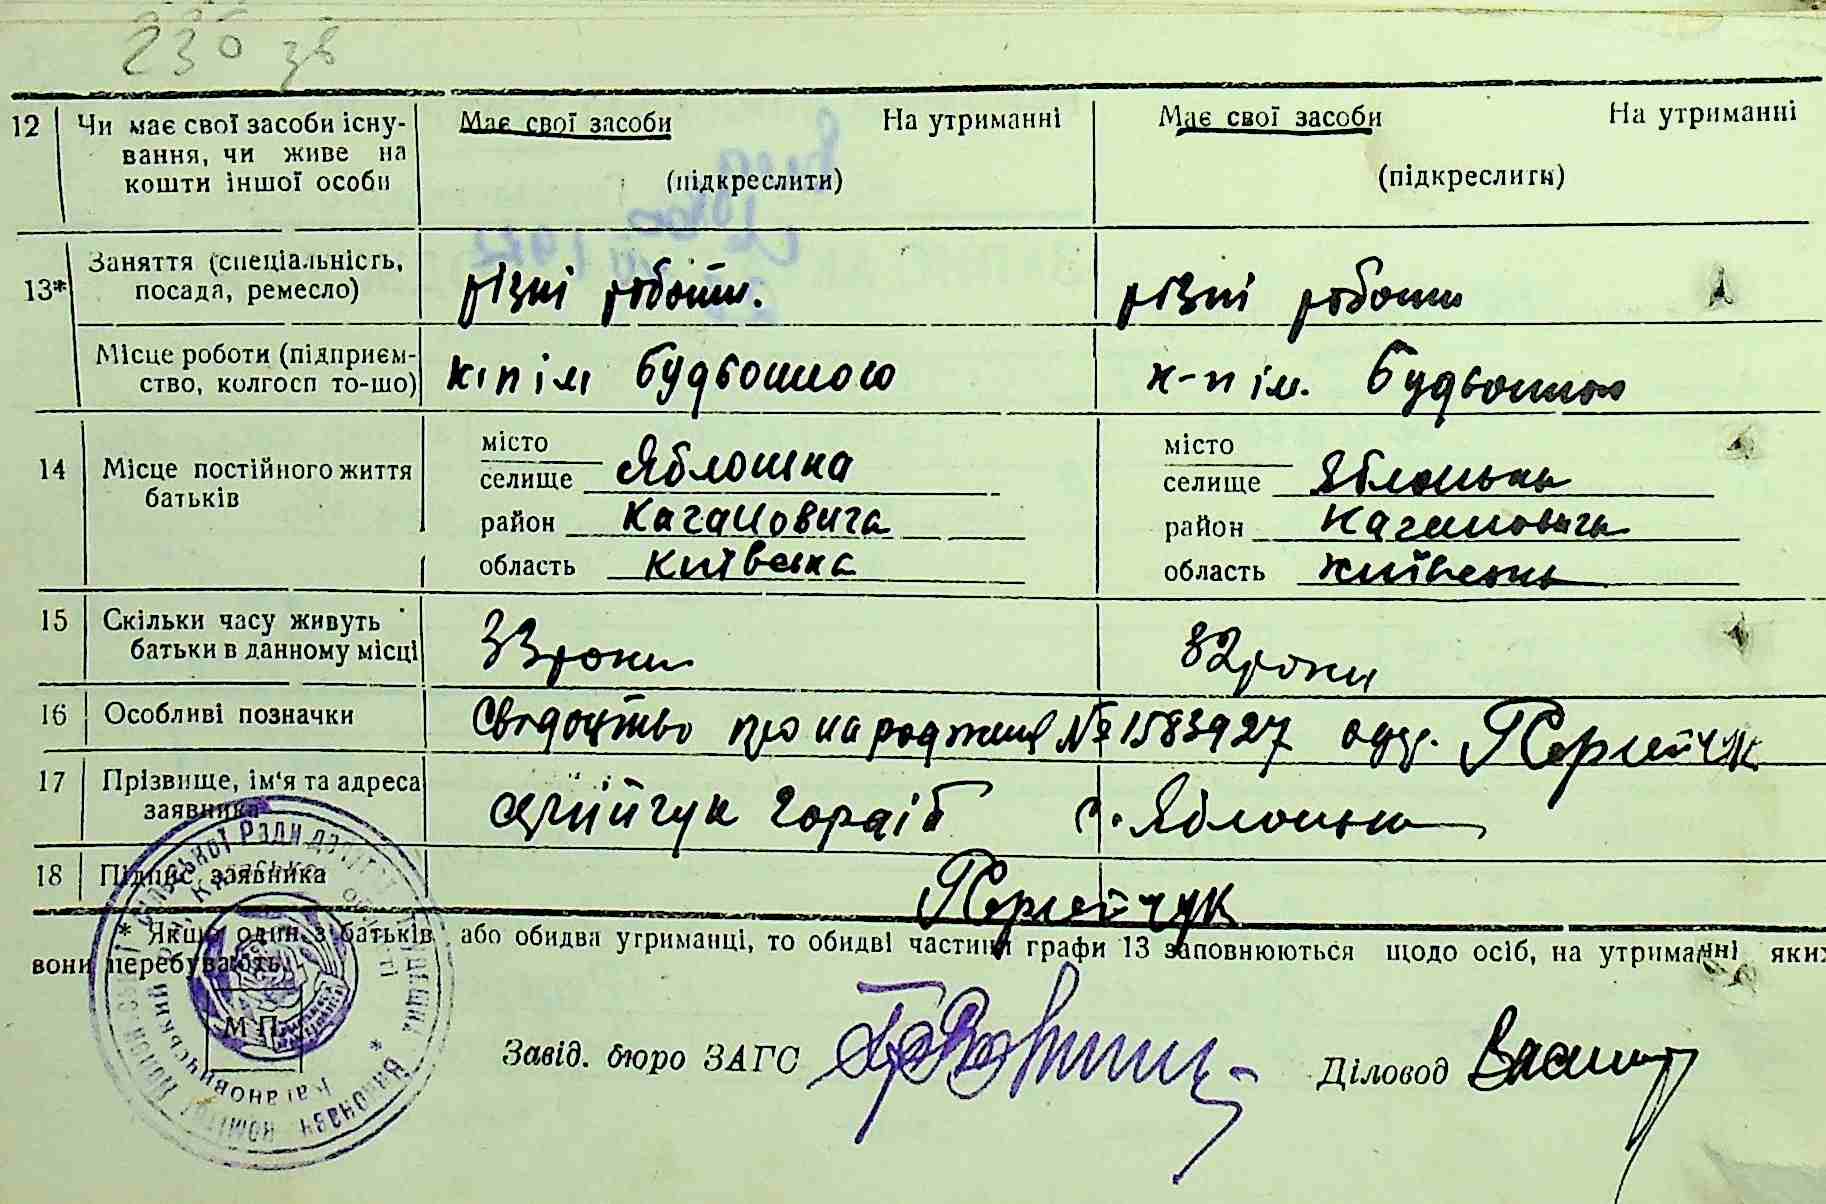 230 зв
12 Чи має свої засоби існу- Має свої засоби На утриманні Має свої засоби На утриманні
вання, чи живе на
кошти іншої особи (підкреслити) (підкреслити)
13* Заняття (спеціальність, посада, ремесло) різні роботи. різні роботи
Місце роботи (підприєм-
ство, колгосп то-що) к-п ім Будьонного к-п ім. Будьонного
місто місто
14 Місце постійного життя батьків селище Яблонька селище Яблонька
район Кагановича район Кагановича
область Київська область Київська
15 Скільки часу живуть
батьки в данному місці 33 роки 32 роки
16 Особливі позначки Свідоцтво про народження № 1583927 одер. Сергійчук
17 Прізвище, ім'я та адреса
заявника Сергійчук Гордій с. Яблонька
18 Підпис заявника Сергійчук
* Якщо один з батьків або обидва утриманці, то обидві частини графи 13 заповнюються щодо осіб, на утриманні яких
вони перебувають.
М П
Завід. бюро ЗАГС Діловод